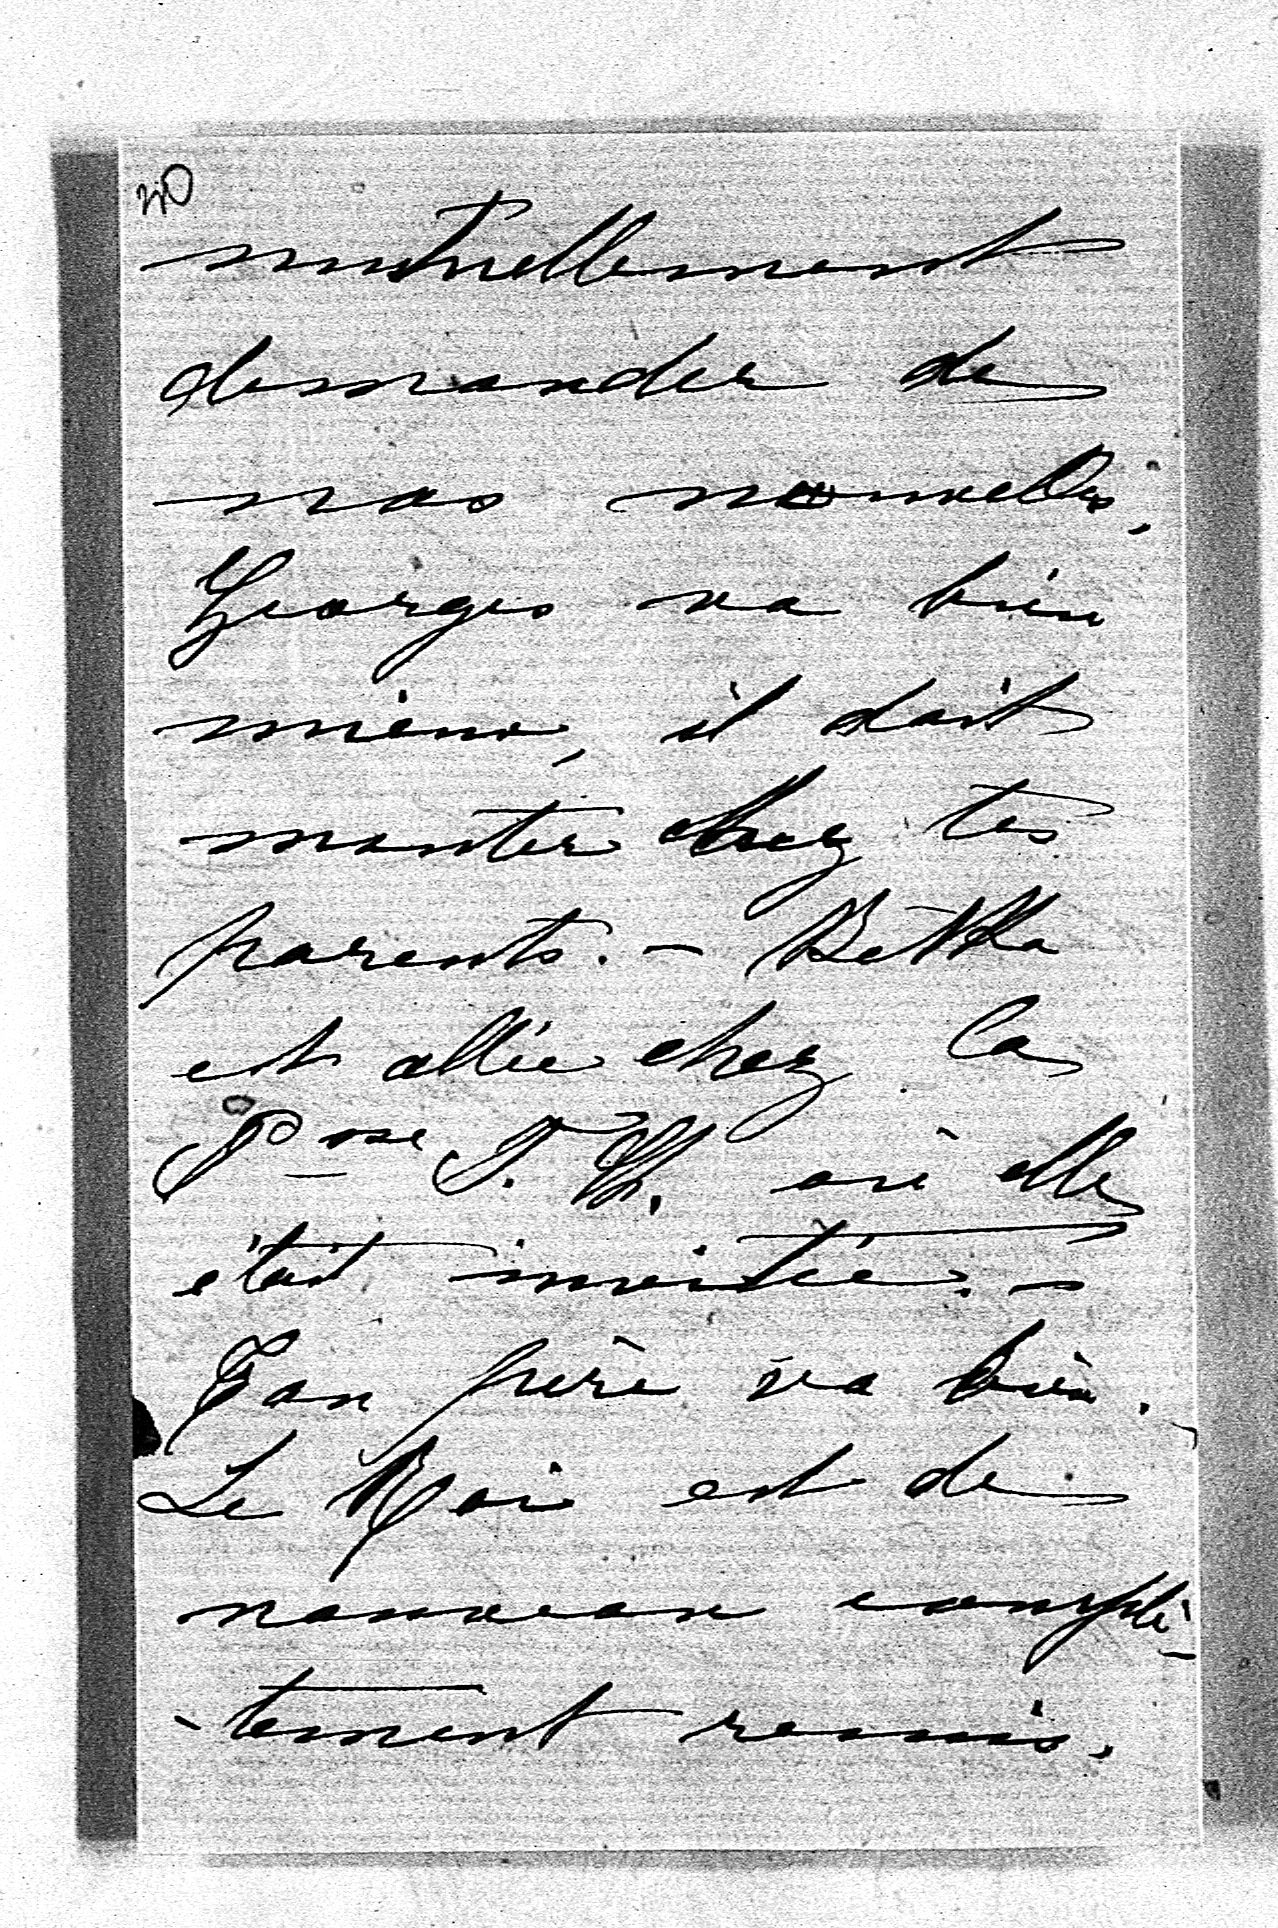 20
mutuellement
demander de
nos nouvelles.
Georges va bien
mieux, il doit
monter chez tes
parents. - Betka
est allée chez la
P sse T. H. où elle
était invitée. -
Ton frère va bien.
Le Roi est de
nouveau complè-
-tement remis.